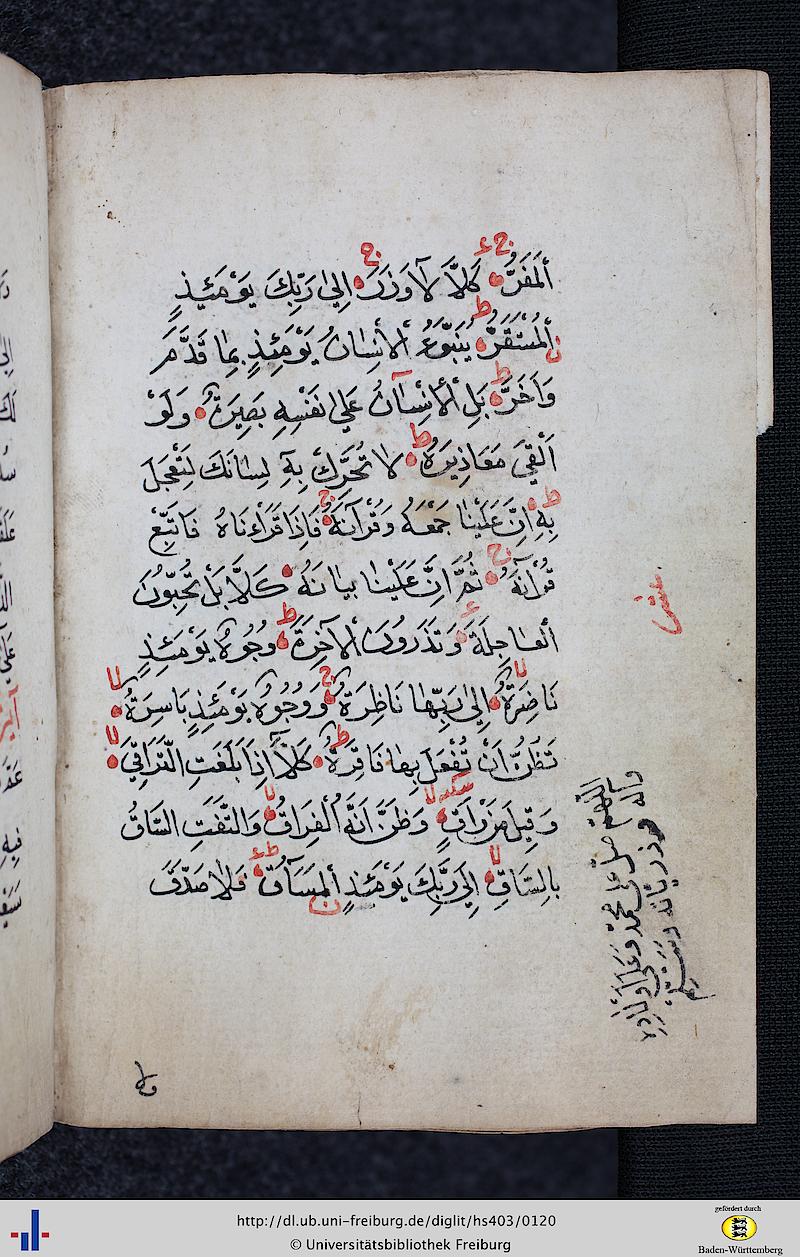 اَلْمَفَرُّ كَلَّا لَا وَزَرَ اِلٰى رَبِّكَ يَوْمَئِذٍ
اَلْمُسْتَقَرُّ يُنَبَّؤُ اَلْاِنْسَانُ يَوْمَئِذٍ بِمَا قَدَّمَ
وَاَخَّرَ بَلِ اَلْاِنْسَانُ عَلٰى نَفْسِهِ بَصِيرَةٌ وَلَوْ
اَلْقٰى مَعَاذِيرَهُ لَا تُحَرِّكْ بِهِ لِسَانَكَ لِتَعْجَلَ
بِهِ اِنَّ عَلَيْنَا جَمْعَهُ وَقُرْآنَهُ فَاِذَا قَرَأْنَاهُ فَاتَّبِعْ
قُرْآنَهُ ثُمَّ اِنَّ عَلَيْنَا بَيَانَهُ كَلَّا بَلْ تُحِبُّونَ
اَلْعَاجِلَةَ وَتَذَرُونَ اَلْآخِرَةَ وُجُوهٌ يَوْمَئِذٍ
نَاضِرَةٌ اِلٰى رَبِّهَا نَاظِرَةٌ وَوُجُوهٌ يَوْمَئِذٍ بَاسِرَةٌ
تَظُنُّ اَنْ تُفْعَلَ بِهَا فَاقِرَةٌ كَلَّا اِذَا بَلَغَتِ التَّرَاقِيَ
وَقِيلَ مَنْ رَاقٍ وَظَنَّ اَنَّهُ الْفِرَاقُ وَالْتَفَّتِ السَّاقُ
بِالسَّاقِ اِلٰى رَبِّكَ يَوْمَئِذٍ اَلْمَسَاقُ فَلَا صَدَّقَ
اللهم صل على محمد وعلى
وآله وذرياته
ولا
http://dl.ub.uni-freiburg.de/diglit/hs403/0120
© Universitätsbibliothek Freiburg
gefördert durch
Baden-Württemberg